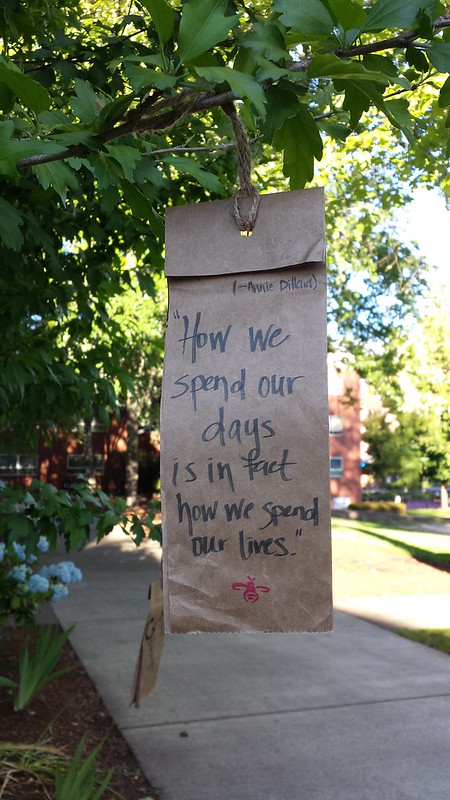 (-Annie Dillard)
"How we
spend our
days
is in fact
how we spend
our lives."